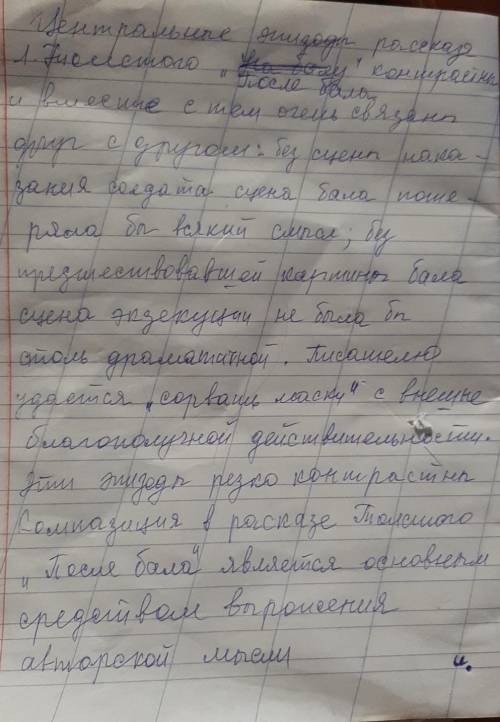 Центральные эпизоды рассказа
Л. Толстого „На балу" контрастны
После бала
и вместе с тем очень связаны
друг с другом: без сцены нака-
зания солдата сцена бала поте-
ряла бы всякий смысл; без
предшествовавшей картины бала
сцена экзекуции не была бы
столь драматичной. Писателю
удается „сорвать маску" с внешне
благополучной действительности.
Эти эпизоды резко контрастны
Композиция в расказе Толстого
„После бала" является основным
средством выражения
авторской мысли
и.